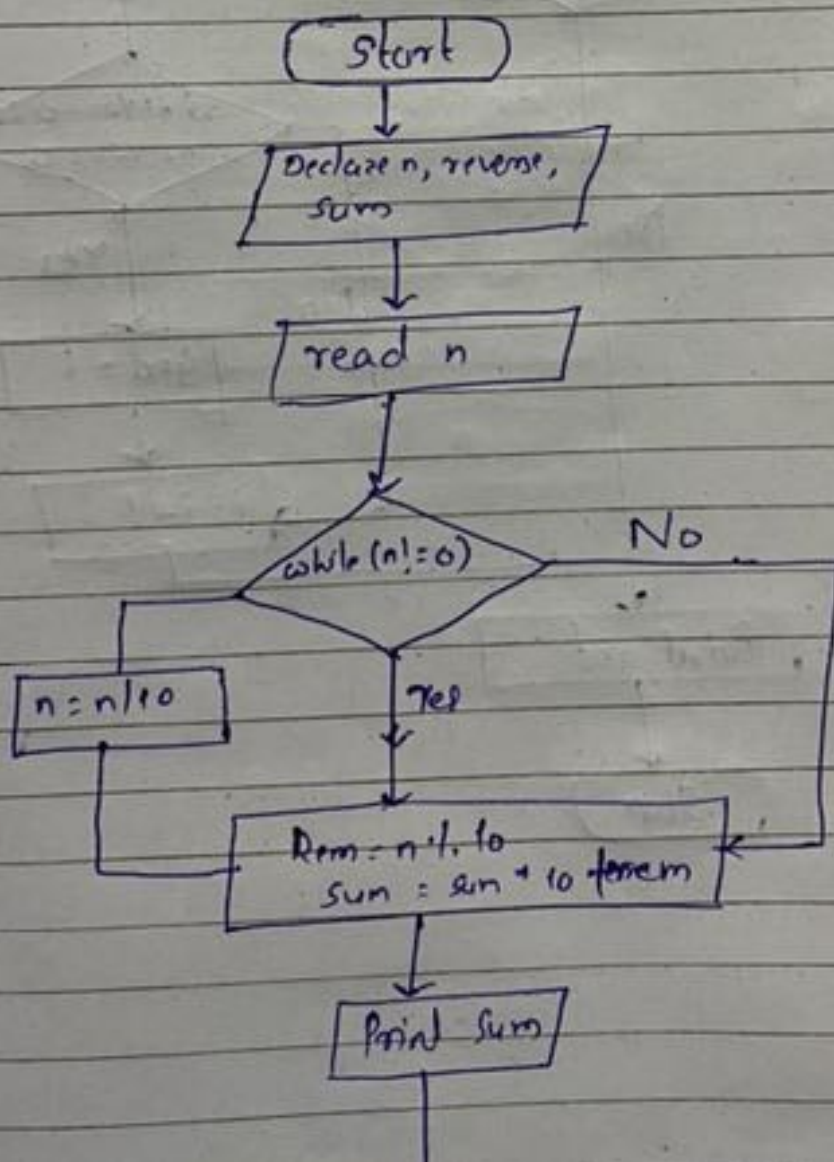 Start
Declare n, reverse,
sum
read n
while (n! = 0)
No
n = n/10
Yes
Rem = n % 10
sum = sum * 10 + rem
Print Sum